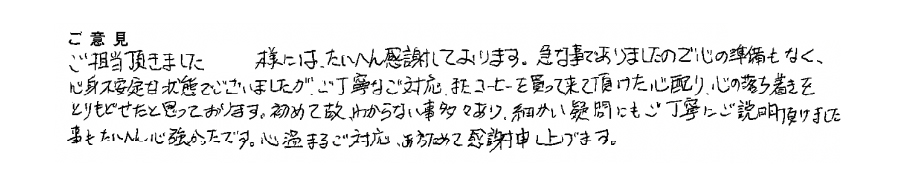 ご意見
ご担当頂きました　　様には、たいへん感謝しております。急な事でありましたので心の準備もなく、
心身不安定な状態でございましたが、ご丁寧なご対応、またコーヒーを買って来て頂けた心配り、心の落ち着きを
とりもどせたと思っております。初めて故、わからない事多々あり、細かい疑問にもご丁寧にご説明頂けました
事もたいへん心強かったです。心温まるご対応、あらためて感謝申し上げます。